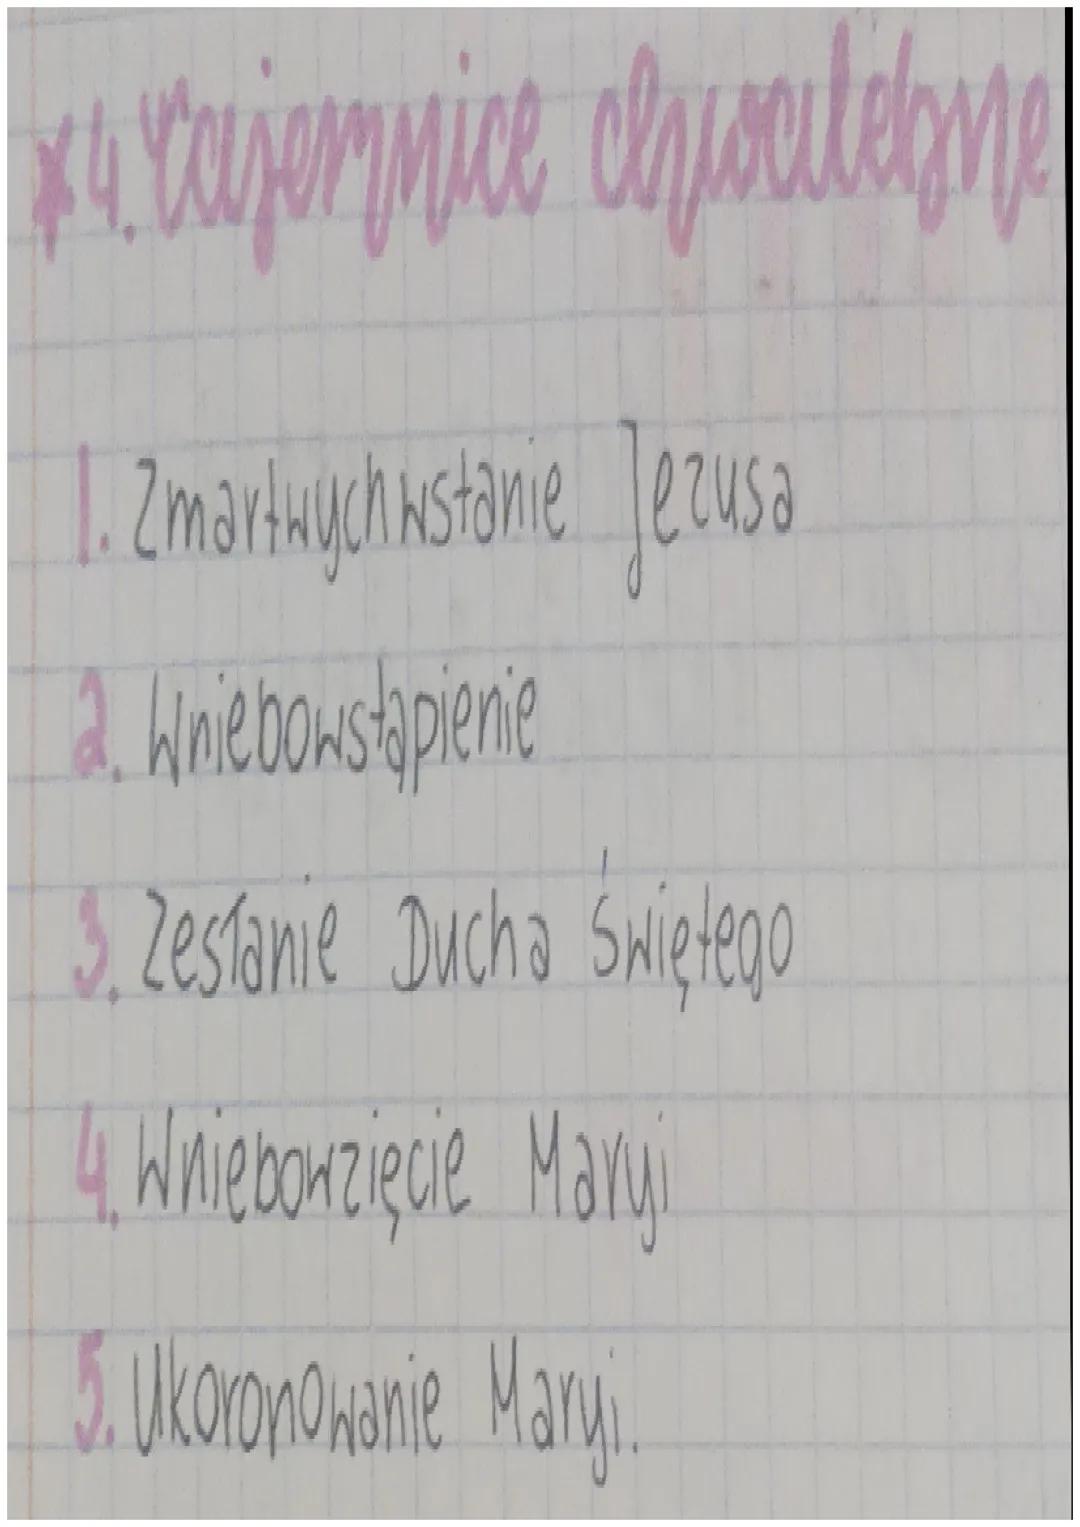 *4. Tajemnice chwalebne
1. Zmartwychwstanie Jezusa
2. Wniebowstąpienie
3. Zesłanie Ducha Świętego
4. Wniebowzięcie Maryi
5. Ukoronowanie Maryi.